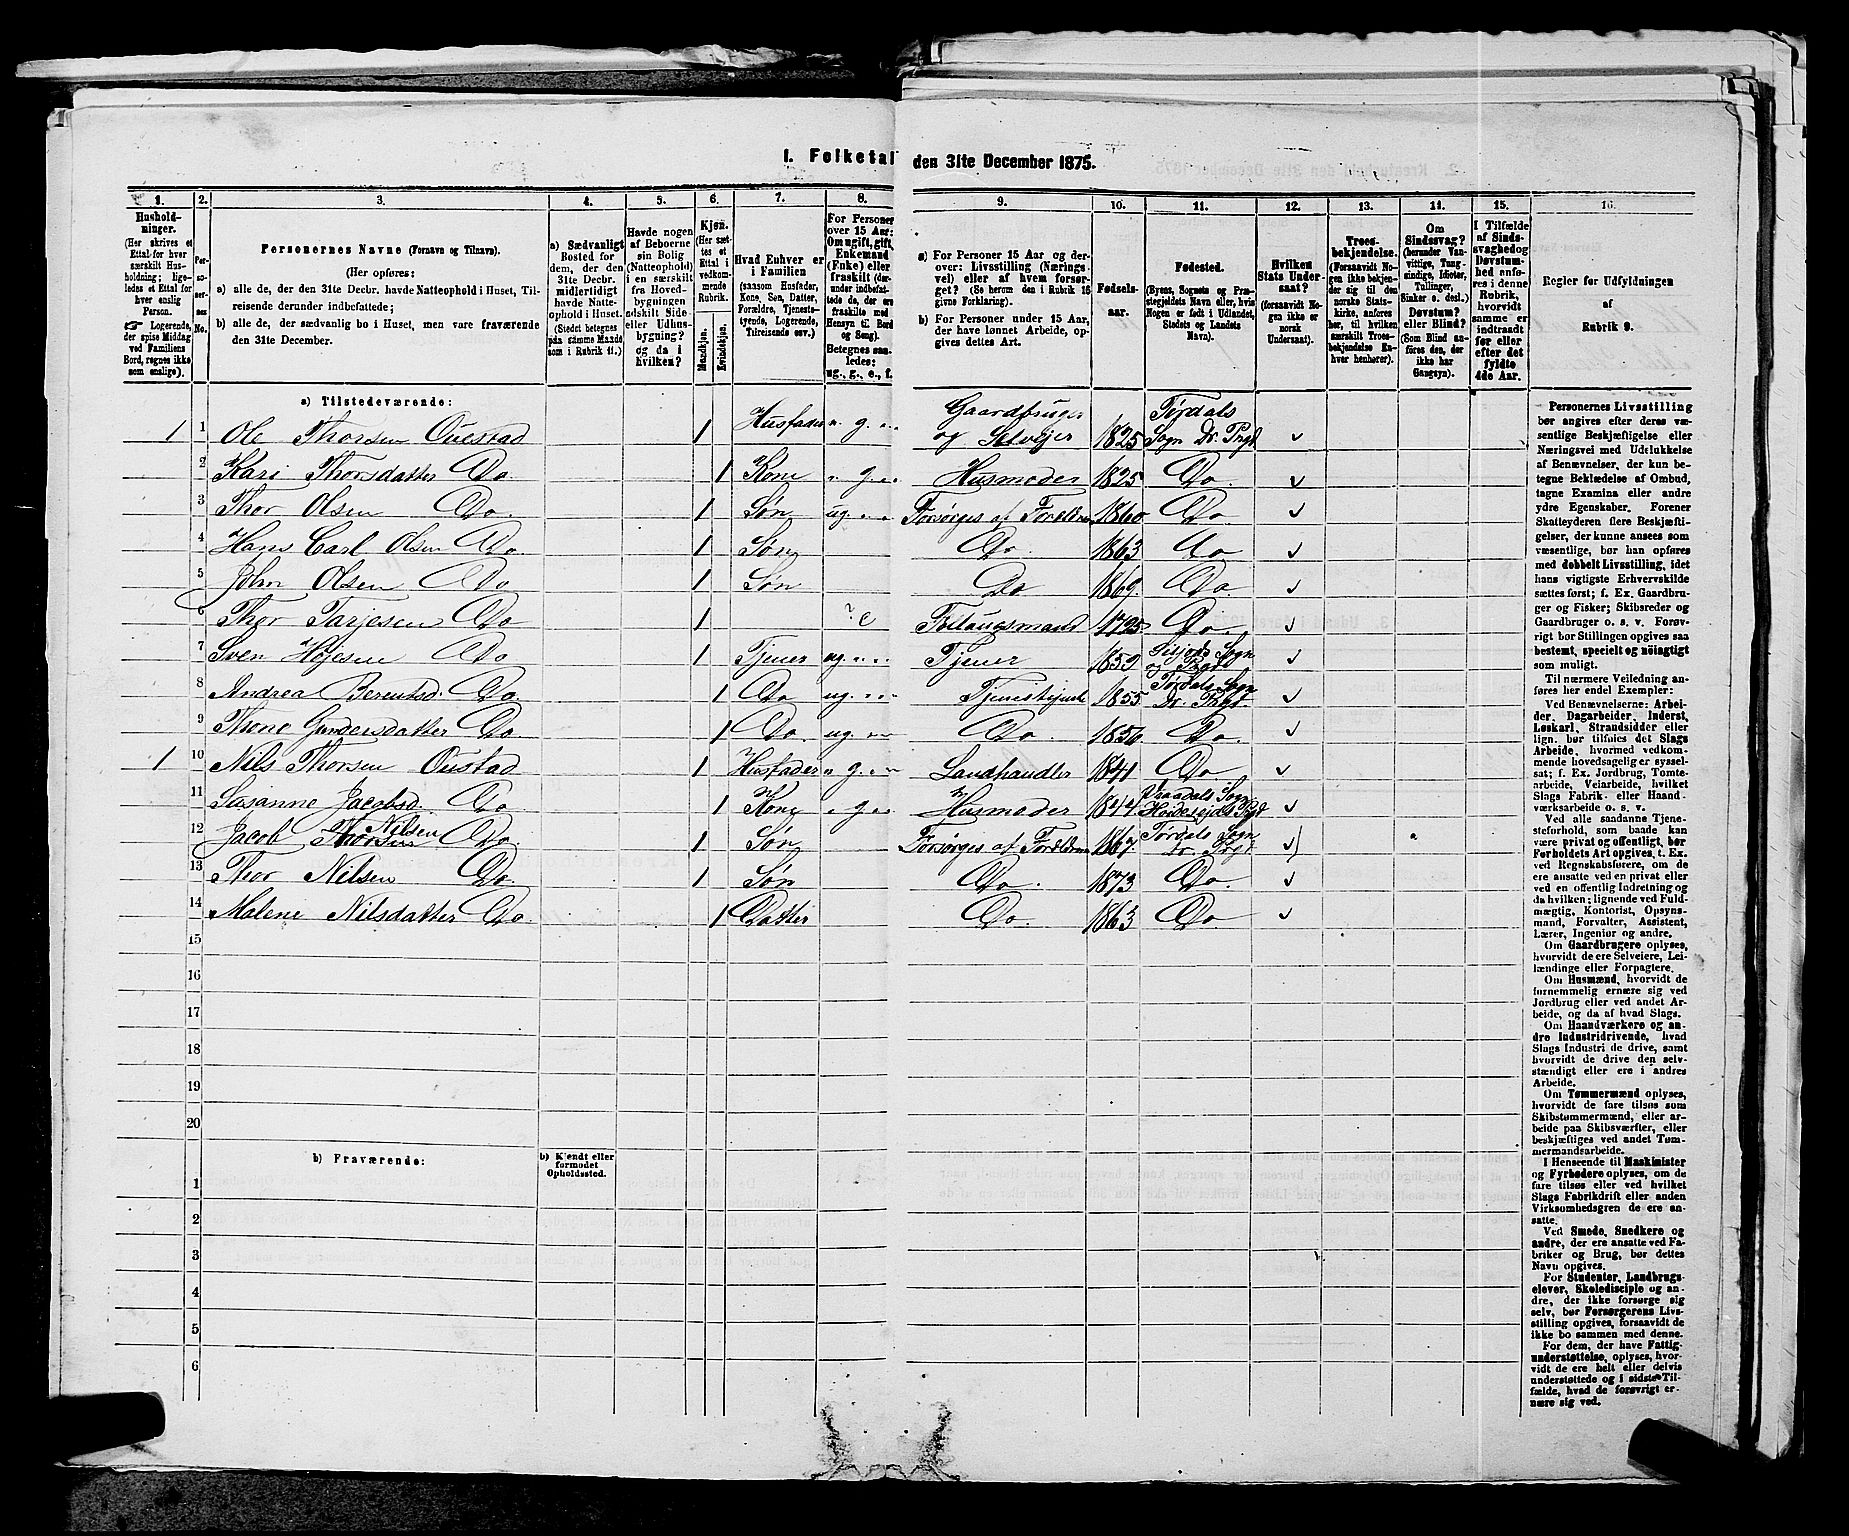 I. Folketal den 31te December 1875.
1. 2. 3. 4. 5. 6. 7. 8. 9. 10. 11. 12. 13. 14. 15. 16.
Hushold-
ninger.
(Her skrives et
Ettal for hver
særskilt Hus-
holdning; lige-
ledes et Ettal for
hver enslig
Person.
☞ Logerende,
der spise Middag
ved Familiens
Bord, regnes ikke
som enslige).
Per-
so-
ner-
nes
No.
Personernes Navne (Fornavn og Tilnavn).
(Her opføres:
a) alle de, der den 31te Decbr. havde Natteophold i Huset, Til-
reisende derunder indbefattede;
b) alle de, der sædvanlig bo i Huset, men vare fraværende
den 31te December.
a) Sædvanligt
Bosted for
dem, der den
31te Decbr.
midlertidigt
havde Natte-
ophold i Huset.
(Stedet betegnes
paa samme Maade
som i Rubrik 11.)
Havde nogen
af Beboerne
sin Bolig
(Natteophold) i
en særskilt
fra Hoved-
bygningen
adskilt Side-
eller Udhus-
bygning?
og da i
hvilken?
Kjøn.
(Her sæt-
tes et
Ettal i
vedkom-
mende
Rubrik.
Mandkjøn.
Kvindekjøn.
Hvad Enhver er
i Familien
(saasom Husfader,
Kone, Søn, Datter,
Forældre, Tjeneste-
tyende, Logerende,
Tilreisende osv.)
For Personer
over 15 Aar:
Om ugift, gift,
Enkemand
(Enke) eller
fraskilt
Betegnes saa-
ledes:
ug., g., e., f.
a) For Personer 15 Aar og der-
over: Livsstilling (Nærings-
vei) eller af hvem forsør-
get? (Se herom den i Rubrik 16
givne Forklaring).
b) For Personer under 15 Aar,
der have lønnet Arbeide, op-
gives dettes Art.
Fødsels-
aar.
Fødested.
(Byens, Sognets og Præ-
stegjeldets Navn eller, hvis
Nogen er født i Udlandet,
Stedets og Landets
Navn).
Hvilken
Stats Under-
saat?
(forsaavidt No-
gen ikke er
norsk
Undersaat).
Troes-
bekjendelse.
(Forsaavidt No-
gen ikke bekjen-
der sig til den
norske Stats-
kirke, anføres
her, til hvilken
særskilt Troes-
bekjendelse En-
hver henhører).
Om
Sindssvag?
(herunder Van-
vittige, Tung-
sindige, Idioter,
Tullinger,
Sinker o. desl.)
Døvstum?
eller Blind?
(Som Blind an-
føres den, der
ikke har
Gangsyn).
I Tilfælde
af Sinds-
svaghed og
Døvstum-
hed anfø-
res i denne
Rubrik,
hvorvidt
samme er
indtraadt
før eller
efter det
fyldte
4de Aar.
Regler for Udfyldningen
af
Rubrik 9.
a) Tilstedeværende:
1 1 Ole Thorsen Ouestad 1 Husfader g. Gaardbruger og Selvejer 1825 Tørdals Sogn Dr. Prgd
2 Kari Thorsdatter Do 1 Kone g. Husmoder 1825 Do.
3 Thor Olsen Do. 1 Søn ug. Forsørges af Foreldrene 1860 Do
4 Hans Carl Olsen Do. 1 Søn Do. 1863 Do
5 John Olsen Do 1 Søn Do 1869. Do.
6 Thor Tarjesen Do 1 ? e Føilaugsmand 1795 Do.
7 Sven Højesen Do 1 Tjener ug. Tjener 1859 Sogn og Prgd
8 Andrea Berentsd. Do. 1 Do ug. 1855 Tørdals Sogn Dr. Prgd
9 Thone Gundersdatter Do. 1 Do. ug. Do. 1856 Do.
1 10 Nils Thorsen Oustad 1 Husfader g. Landhandler 1841 Do
11 Susanne Jacobsd. Do. 1 Kone g. Husmoder 1844 Vraadals Sogn Hvideseids Prgd
12 Jacob Thorsen Nilsen Do. 1 Søn Forsørges af Foreldrene 1867. Tørdals Sogn Dr. Prgd
13 Thor Nilsen Do. 1 Søn Do. 1873 Do.
14 Malene Nilsdatter Do. 1 Datter Do. 1863 Do.
15
16
17
18
19
20
b) Fraværende:
b) Kjendt eller
formodet
Opholdssted.
1
2
3
4
5
6
Personernes Livsstilling
bør angives efter deres væ-
sentlige Beskjæftigelse eller
Næringsvei med Udelukkelse
af Benævnelser, der kun be-
tegne Beklædelse af Ombud,
tagne Examina eller andre
ydre Egenskaber. Forener
Skatteyderen flere Beskjæfti-
gelser, der kunne ansees som
væsentlige, bør han opføres
med dobbelt Livsstilling, idet
hans vigtigste Erhvervskilde
sættes først; f. Ex. Gaardbru-
ger og Fisker; Skibsreder og
Gaardbruger o. s. v. Forøv-
rigt bør Stillingen opgives saa
bestemt, specielt og nøiagtigt
som muligt.
Til nærmere Veiledning an-
føres her endel Exempler:
Ved Benævnelserne: Arbei-
der, Dagarbeider, Inderst,
Løskarl, Strandsidder eller
lign. bør tilføies det Slags
Arbeide, hvormed vedkom-
mende hovedsagelig er syssel-
sat; f. Ex. Jordbrug, Tomte-
arbeide, Veiarbeide, hvilket
Slags Fabrik- eller Haand-
værksarbeide o. s. v.
Ved alle saadanne Tjene-
steforhold, som baade kan
være privat og offentligt, bør
Forholdets Art opgives, t. Ex.
ved Regnskabsførere, om de
ere ansatte ved en privat eller
ved en offentlig Indretning og
da hvilken; lignende ved Fuld-
mægtig, Kontorist, Opsyns-
mand, Forvalter, Assistent,
Lærer, Ingeniør og andre.
Om Gaardbrugere oplyses,
hvorvidt de ere Selveiere, Lei-
lændinge eller Forpagtere.
Om Husmænd, hvorvidt de
fornemmelig ernære sig ved
Jordbrug eller ved andet Ar-
beide, og da af hvad Slags.
Om Haandværkere og an-
dre Industridrivende, hvad
Slags Industri de drive, samt
hvorvidt de drive den selv-
stændigt eller ere i andres
Arbeide.
Om Tømmermænd oplyses,
hvorvidt de fare tilsøs som
Skibstømmermænd, eller ar-
beide paa Skibsværfter, eller
beskjæftiges ved andet Tøm-
mermandsarbeide.
I Henseende til Maskinister
og Fyrbødere oplyses, om de
fare tilsøs eller ved hvilket
Slags Fabrikdrift eller anden
Virksomhedsgren de ere an-
satte.
Ved Smede, Snedkere og
andre, der ere ansatte ved Fa-
briker og Brug, bør dettes
Navn opgives.
For Studenter, Landbrugs-
elever, Skoledisciple og an-
dre, der ikke forsørge sig
selv, bør Forsørgerens Livs-
stilling opgives, forsaavidt de
ikke bo sammen med denne.
For dem, der have Fattig-
understøttelse, oplyses, hvor-
vidt de ere helt eller delvis
understøttede og i sidste Til-
fælde, hvad de forøvrigt er-
nære sig ved.